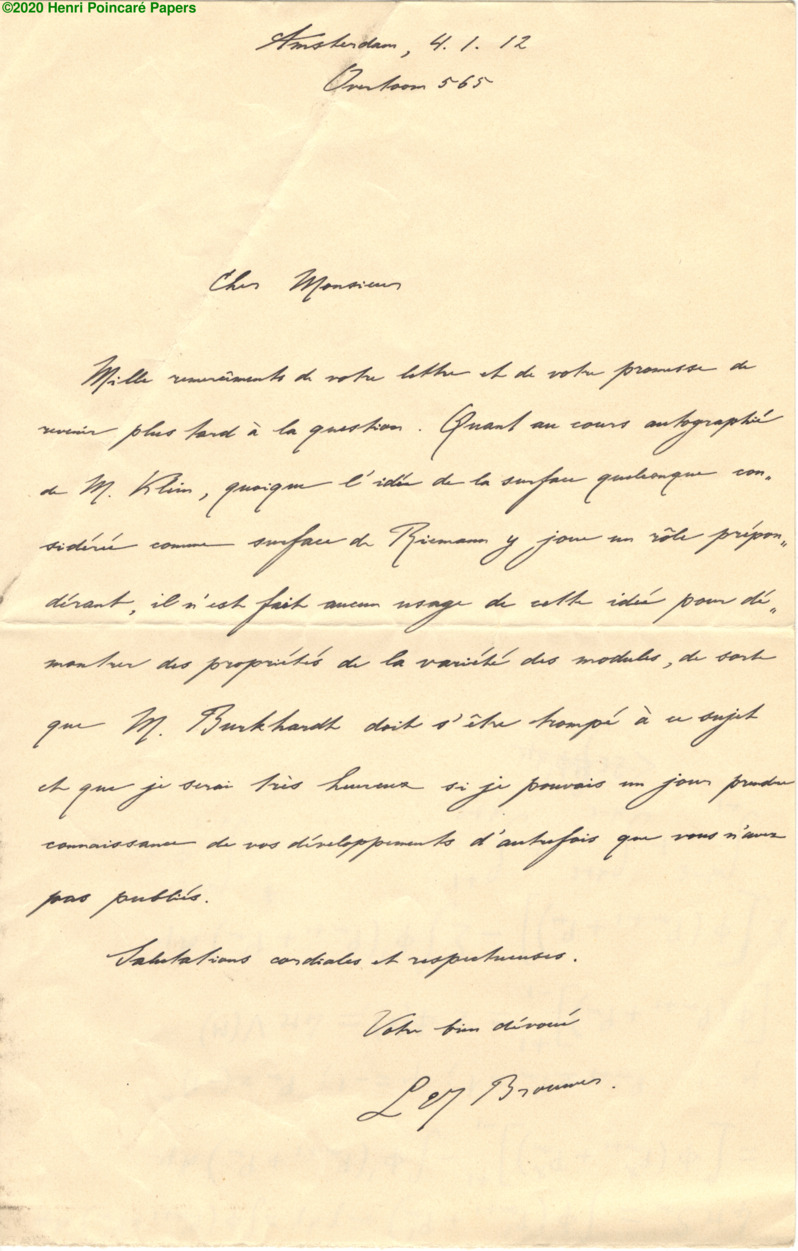 ©2020 Henri Poincaré Papers
Amsterdam, 4. 1. 12
Overtoom 565
Cher Monsieur
Mille remercîments de votre lettre et de votre promesse de
revenir plus tard à la question. Quant au cours autographié
de M. Klein, quoique l'idée de la surface quelconque con„
sidérée comme surface de Riemann y joue un rôle prépon„
dérant, il n'est fait aucun usage de cette idée pour dé„
montrer des propriétés de la variété des modules, de sorte
que M. Burkhardt doit s'être trompé à ce sujet
et que je serai très heureux si je pouvais un jour prendre
connaissance de vos développements d'autrefois que vous n'avez
pas publiés.
Salutations cordiales et respectueuses.
Votre bien dévoué
L E J Brouwer.